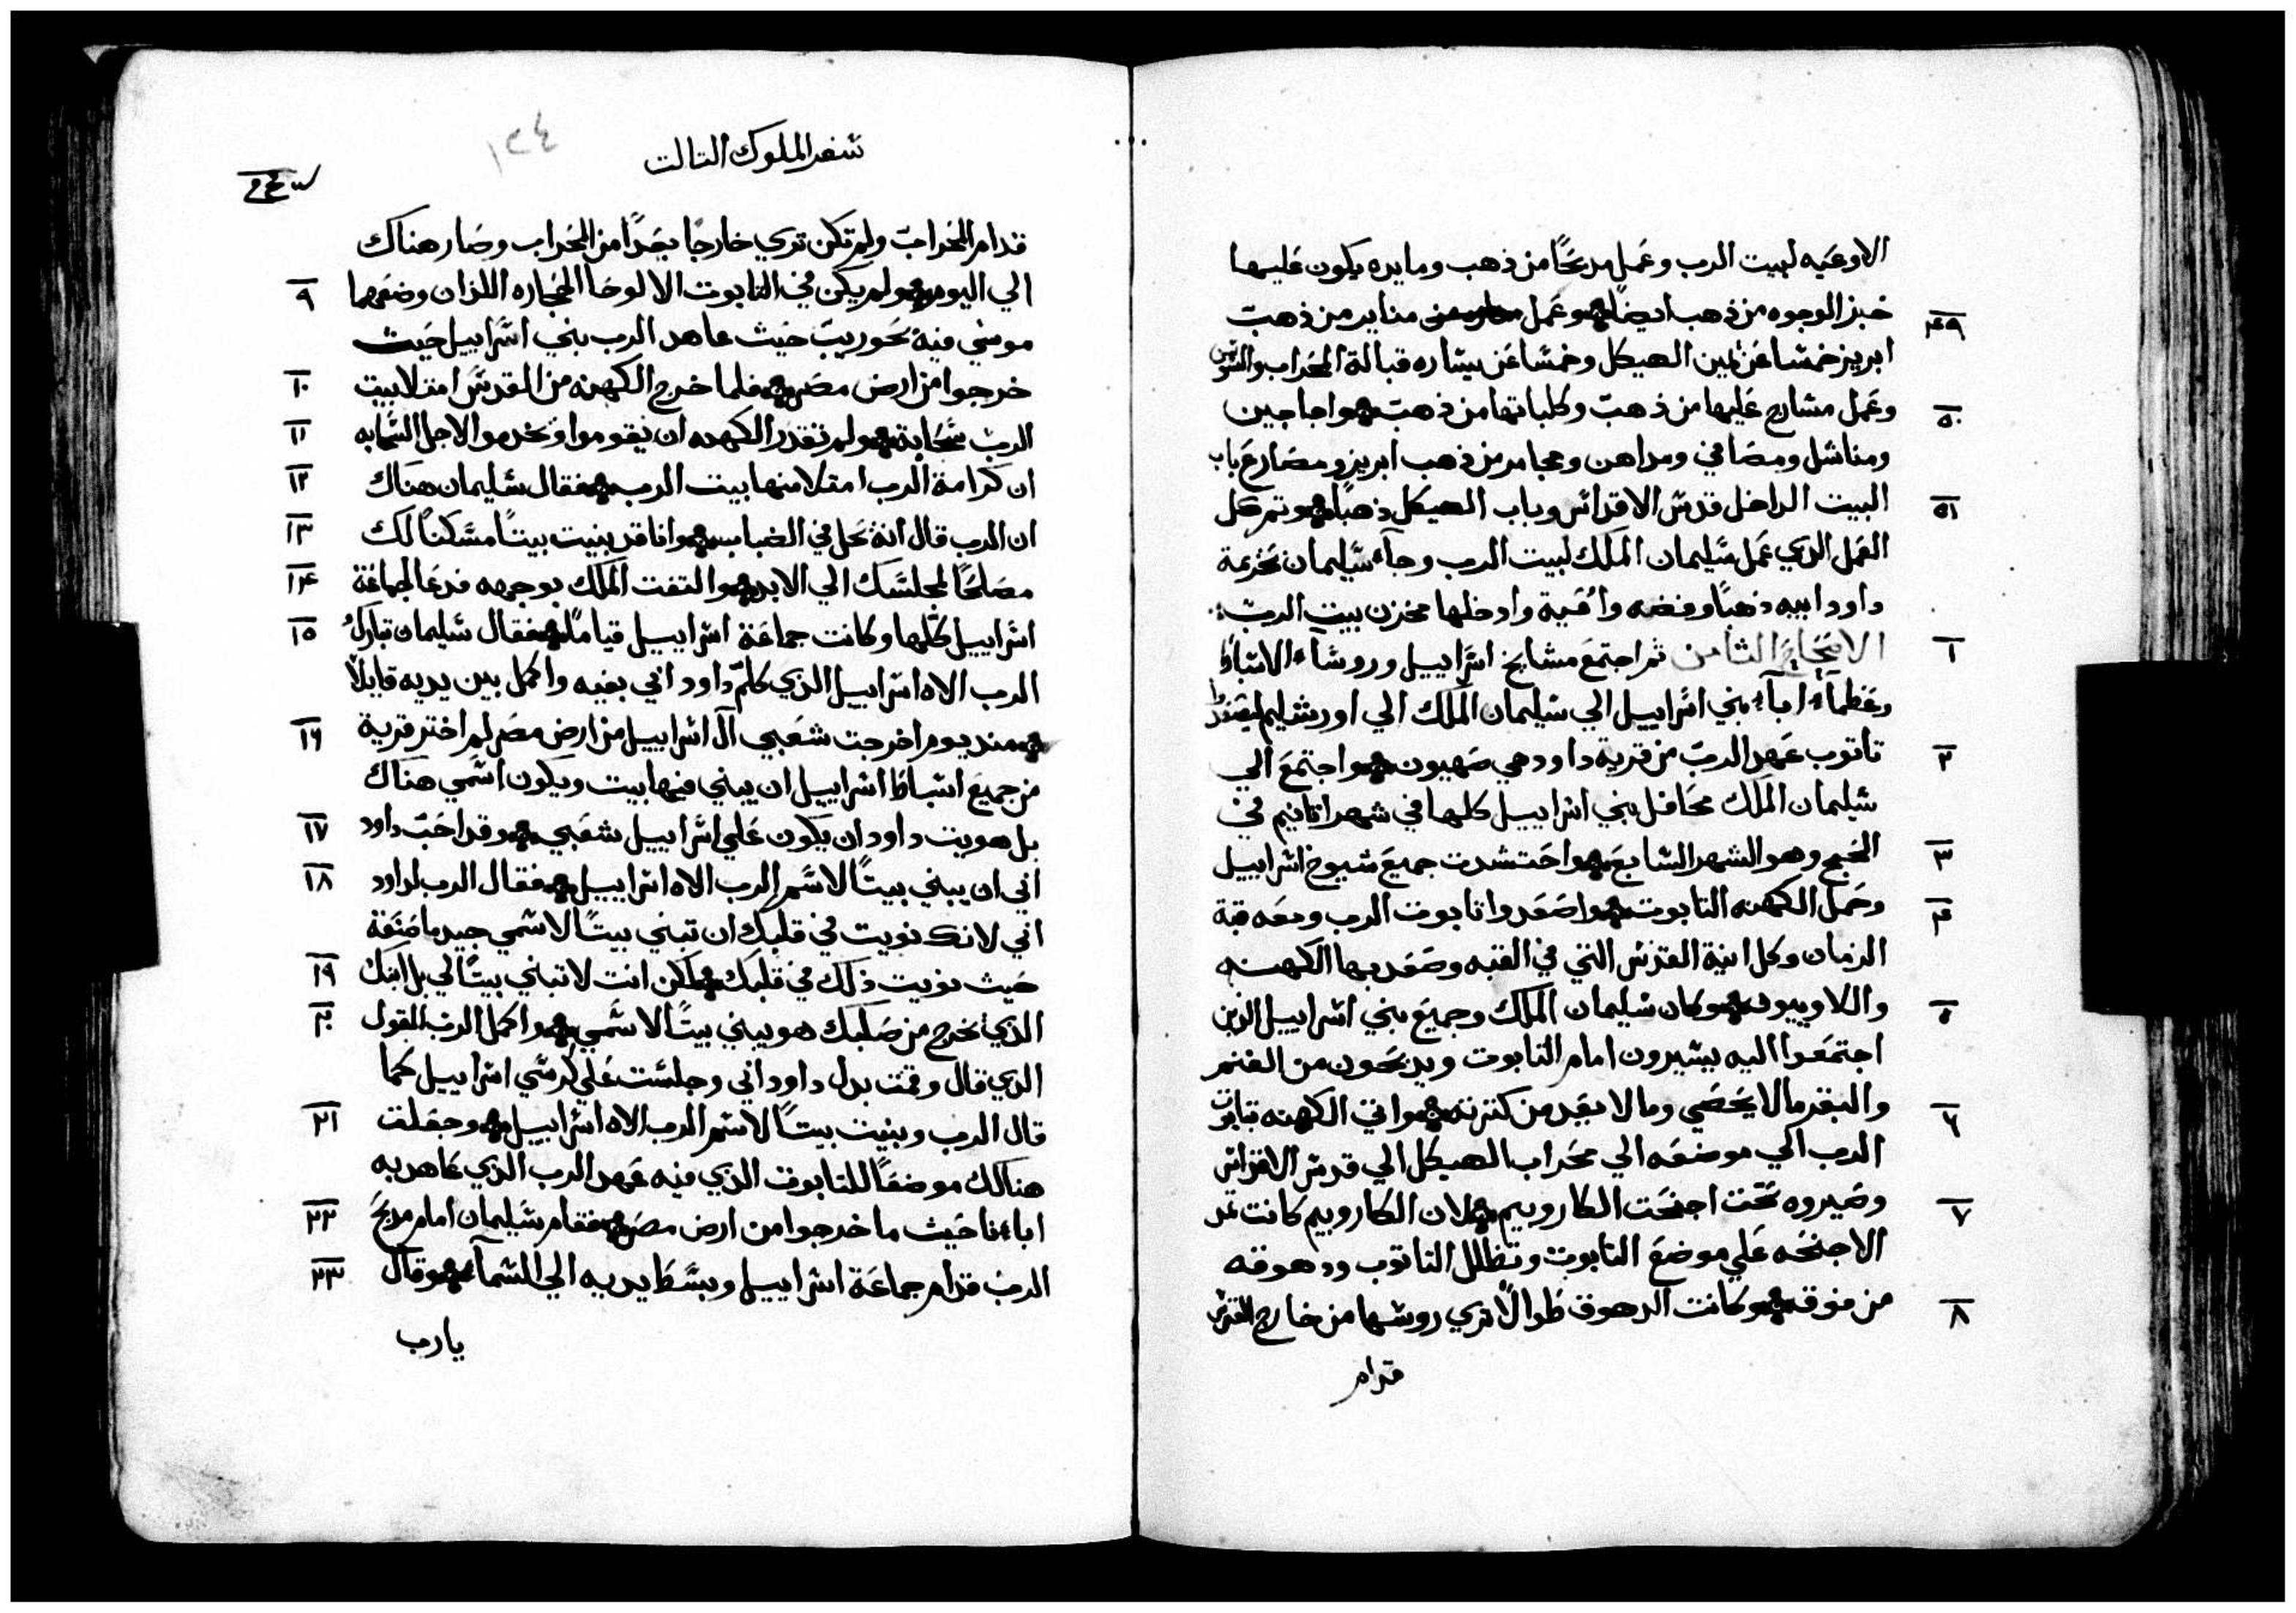 الاوعيه لبيت الرب وعمل مدبحًا من ذهب ومايده يكون عليها
٤٩ خبز الوجوه من ذهب ايضًا وعمل مناير من ذهب
ابريز خمسا عن يمين الهيكل وخمسا عن يساره قبالة المحراب والسوسن
٥٠ وعمل مسارج عليها من ذهب وكلباتها من ذهب واجاجين
ومناشل ومصافي ومداهن ومجامر من ذهب ابريز ومصارع باب
٥١ البيت الداخل قدس الاقداس وباب الهيكل ذهبًا وتم كل
العمل الذي عمل سليمان الملك لبيت الرب وجآء سليمان بخزمة
داود ابيه ذهبًا وفضه وانية وادخلها مخزن بيت الرب
١ الاصحاح الثامن ثم اجتمع مشايخ اسراييل وروساء الاسباط
وعظمآء ابآء بني اسراييل الي سليمان الملك الي اورشليم ليصعدوا
٢ تاتوب عهد الرب من قرية داود هي صهيون واجتمع الي
سليمان الملك محافل بني اسراييل كلها في شهر اتانيم في
٣ الحج وهو الشهر السابع واحتشدت جميع شيوخ اسراييل
٤ وحمل الكهنه التابوت واصعدوا تابوت الرب ومعه قبة
الزمان وكل انية القدس التي في القبه وصعد بها الكهنه
٥ واللاوييون وكان سليمان الملك وجميع بني اسراييل الذين
اجتمعوا اليه يسيرون امام التابوت ويدبحون من الغنم
٦ والبقر مالا يحصي وما لا يعد من كترته واتي الكهنه بتابوت
الرب الي موضعه الي محراب الهيكل الي قدس الاقداس
٧ وصيروه تحت اجنحت الكاروبيم لان الكاروبيم كانت تمد
الاجنحه علي موضع التابوت وتظلل التاتوب ودهوقه
٨ من فوقه وكانت الدهوق طوالًا تري روسها من خارج القدس
قدام
سفر الملوك التالت
١٢٤
قدام المحراب ولم تكن تري خارجًا بعدًا من المحراب وصار هناك
٩ الي اليوم ولم يكن في التابوت الا لوحا الحجاره اللذان وضعهما
موسي فيه بحوريب حيث عاهد الرب بني اسراييل حيث
١٠ خرجوا من ارض مصر فلما خرج الكهنه من القدس امتلا بيت
١١ الرب سحابة ولم تقدر الكهنه ان يقوموا ويخدموا لاجل السحابه
١٢ ان كرامة الرب امتلا منها بيت الرب فقال سليمان هناك
١٣ ان الرب قال انه يحل في الضباب وانا قد بنيت بيتًا مسكنًا لك
١٤ مصلحًا لمجلسك الي الابد والتفت الملك بوجهه فدعا لجماعة
١٥ اسراييل كلها وكانت جماعة اسراييل قيامًا فقال سليمان تبارك
الرب الاه اسراييل الذي كلم داود ابي بفيه واكمل بين يديه قايلًا
١٦ مند يوم اخرجت شعبي آل اسراييل من ارض مصر لم اختر قرية
من جميع اسباط اسراييل ان يبني فيها بيت ويكون اسمي هناك
١٧ بل هويت داود ان يكون علي اسراييل شعبي وقد احب داود
١٨ ابي ان يبني بيتًا لاسم الرب الاه اسراييل فقال الرب لداود
ابي لانك نويت في قلبك ان تبني بيتًا لاسمي جيد ما صنعة
١٩ حيث نويت ذلك في قلبك لكن انت لا تبني بيتًا لي بل ابنك
٢٠ الذي يخرج من صلبك هو يبني بيتًا لاسمي واكمل الرب القول
الذي قال وقمت بدل داود ابي وجلست علي كرسي اسراييل كما
٢١ قال الرب وبنيت بيتًا لاسم الرب الاه اسراييل وجعلت
هنالك موضعًا للتابوت الذي فيه عهد الرب الذي عاهد به
٢٢ اباءنا حيث ما خرجوا من ارض مصر فقام سليمان امام مدبح
٢٣ الرب قدام جماعة اسراييل وبسط يديه الي السمآء وقال
يا رب